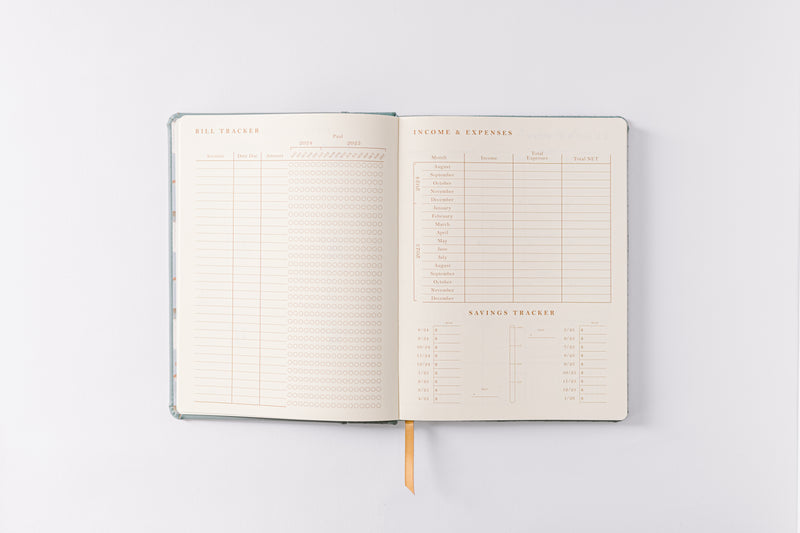 BILL TRACKER
Paid
2024 2025
Date Due Amount
INCOME & EXPENSES
Month Income Total Expenses Total NET
2024
August
September
October
November
December
2025
January
February
March
April
May
June
July
August
September
October
November
December
SAVINGS TRACKER
8/24 $
9/24 $
10/24 $
11/24 $
12/24 $
1/25 $
2/25 $
3/25 $
4/25 $
5/25 $
6/25 $
7/25 $
8/25 $
9/25 $
10/25 $
11/25 $
12/25 $
1/26 $